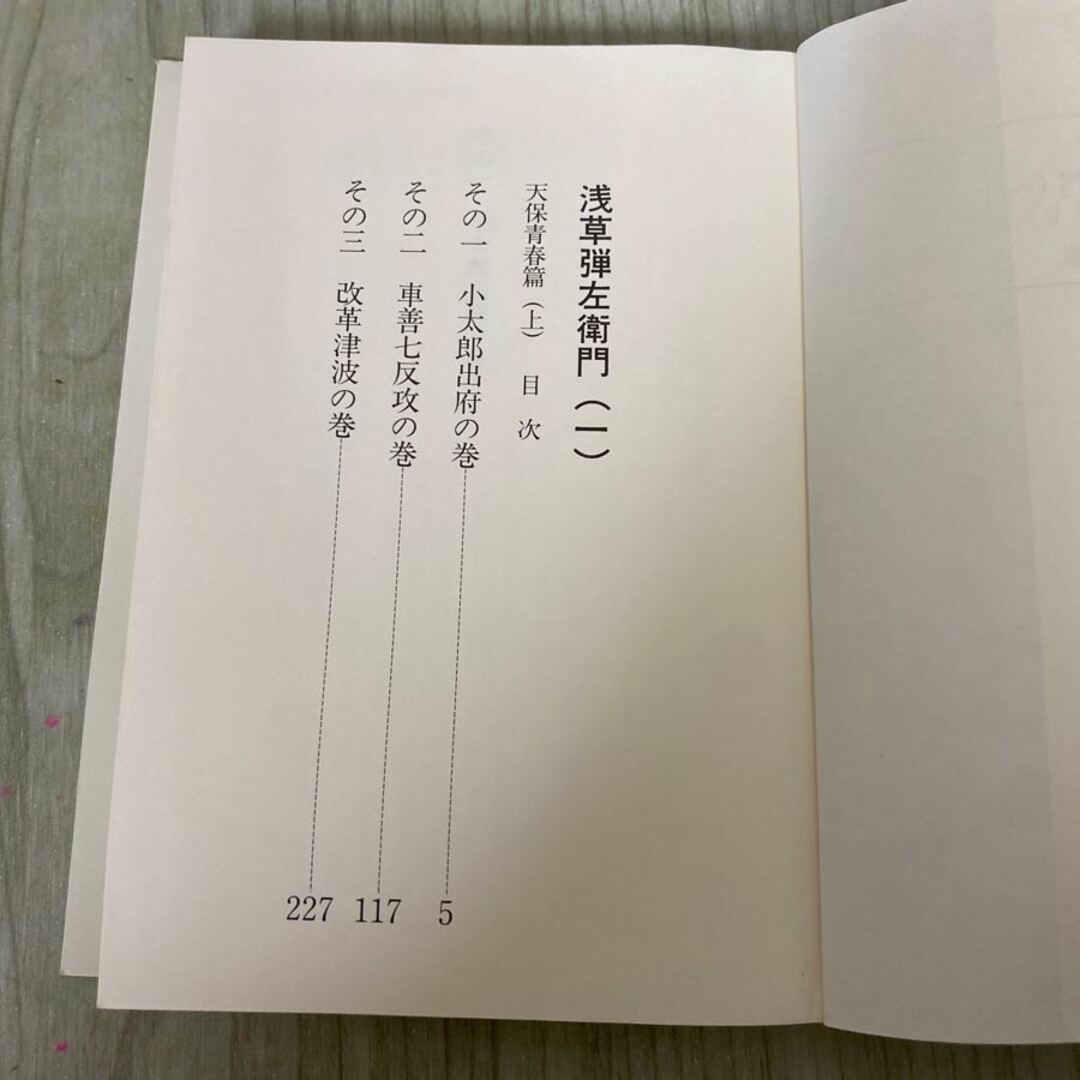 浅草弾左衛門(一)
天保青春篇(上) 目次
その一 小太郎出府の巻 5
その二 車善七反攻の巻 117
その三 改革津波の巻 227